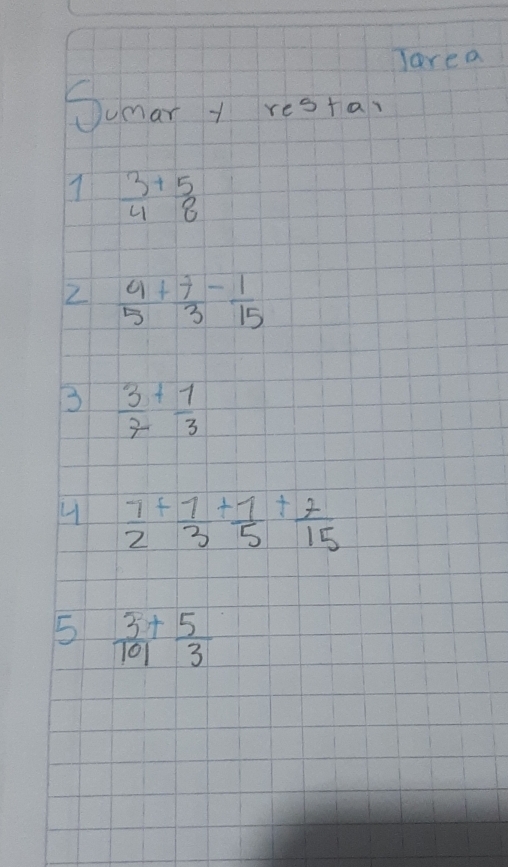 Tarea
Sumar y restar
1 3/4 + 5/8
2 9/5 + 7/3 - 1/15
3 3/7 + 1/3
4 1/2 + 1/3 + 1/5 + 7/15
5 3/101 + 5/3